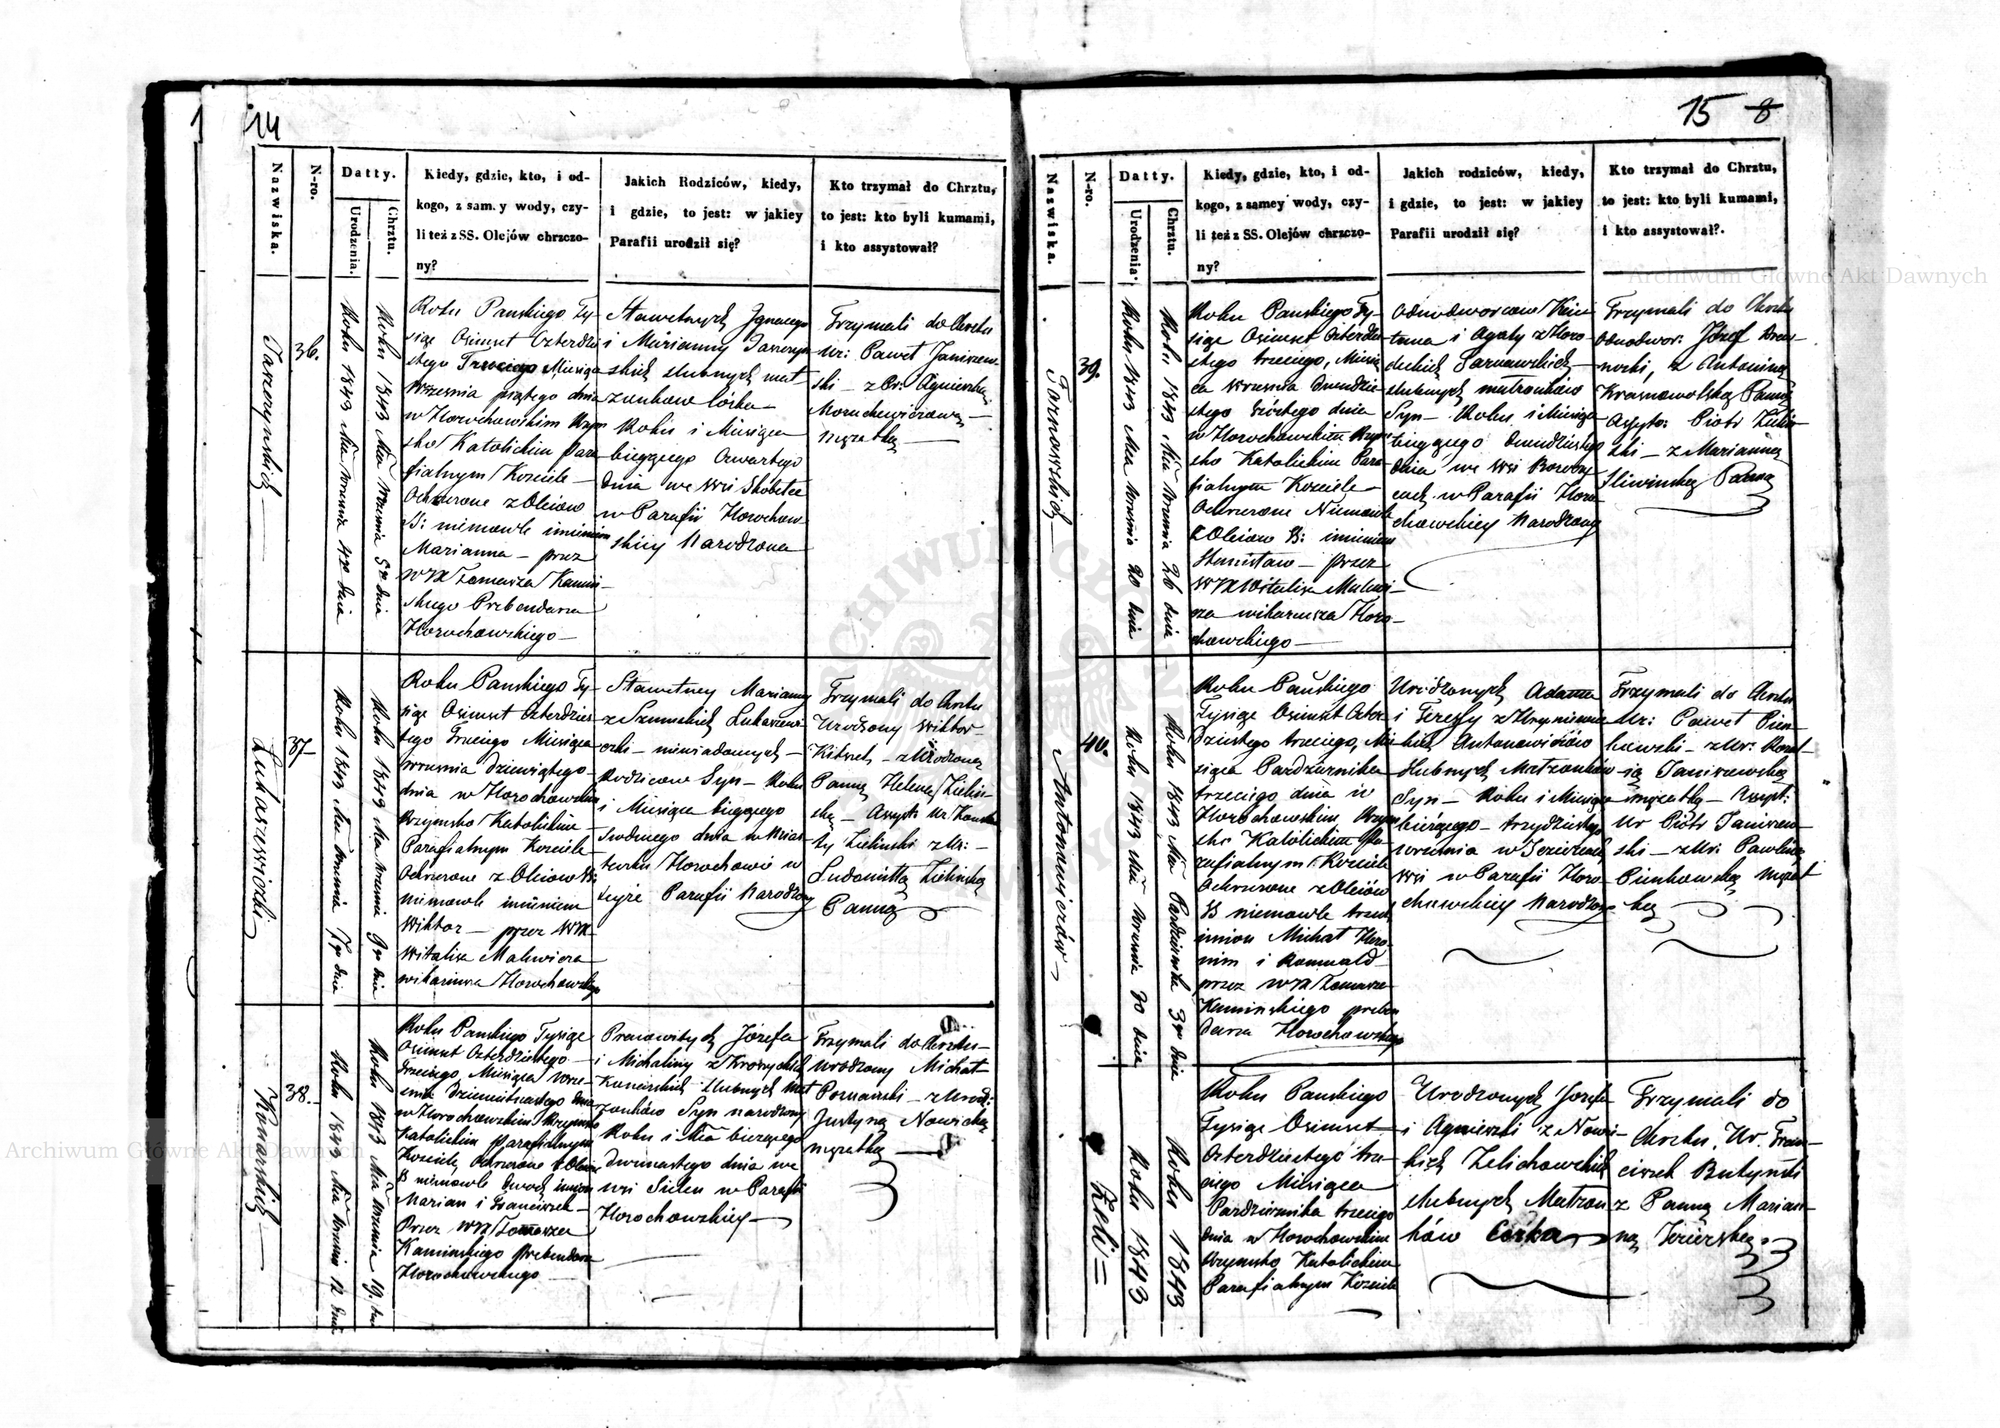 14
Nazwiska.
N-ro.
Datty.
Urodzenia.
Chrztu.
Kiedy, gdzie, kto, i od-
kogo, z sam.y wody, czy-
li też z SS. Olejów chrzczo-
ny?
Jakich Rodziców, kiedy,
i gdzie, to jest: w jakiey
Parafii urodził się?
Kto trzymał do Chrztu,
to jest: kto byli kumami,
i kto assystował?
36.
Roku 1843 Mca Wrzesnia 4go dnia
Roku 1843 Mca Wrzesnia 5go dnia
Roku Panskiego Ty-
siąc Osimset Czterdzie
stego Trzeciego Miesiąca
Wrzesnia piątego dnia
w Horochowskim Rzym
sko Katolickim Para
fialnym Kosciele —
Ochrzczone z Oleiow
SS: niemowle imieniem
Marianna — przez
WX Tomasza Kamin-
skiego Prebendarza
Horochowskiego —
Sławetnych Ignacego
i Marianny
skich slubnych mał-
zonkow Córka —
Roku i Miesiąca
bieżącego Czwartego
dnia we Wsi
w Parafii Horochow
skiey Narodzona
Trzymali do Chrztu
Ur: Paweł Janiszew-
ski — z Ur: Agnieszką
męzatką —
Łukaszewiczki
37
Roku 1843 Mca Wrzesnia 7go dnia
Roku 1843 Mca Wrzesnia 9go dnia
Roku Panskiego Ty-
siąc Osimset Czterdzies
tego Trzeciego Miesiąca
Wrzesnia dziewiątego
dnia w Horochowskim
Rzymsko Katolickim
Parafialnym Kosciele
Ochrzczone z Oleiow SS:
niemowle imieniem
Wiktor — przez WX
Witalisa
wikariusza Horochowskiego
Sławetney Marianny
z Szumskich Łukaszewi-
czki — niewiadomych —
Rodzicow Syn — Roku
i Miesiąca bieżącego
Siodmego dnia w Mias
teczku Horochowie w
teyże Parafii Narodzony
Trzymali do Chrztu
Urodzony Wiktor
z Urodzoną
Panną Heleną Zieliń
ską — Assyst: Ur:
Zieliński z Ur: —
Ludowiką Zielińską
Panną
Konarskich
38.
Roku 1843 Mca Wrzesnia 12 dnia
Roku 1843 Mca Wrzesnia 19. dnia
Roku Panskiego Tysiąc
Osimset Czterdziestego
Trzeciego Miesiąca Wrze-
snia Dziewiętnastego dnia
w Horochowskim Rzymsko
Katolickim Parafialnym
Kosciele Ochrzczone z Oleiow
SS niemowle dwoch imion
Marian i Franciszek
Przez WX Tomasza
Kaminskiego Prebendarza
Horochowskiego —
Pracowitych Józefa
i Michaliny z
slubnych Mał
zonków Syn narodzony
Roku i Mca bieżącego
dwunastego dnia we
wsi Sielcu w Parafii
Horochowskiey —
Trzymali do Chrztu
Urodzony Michał
z Urodz:
Justyną Nowicką
męzatką —
15 8
Nazwiska.
N-ro.
Datty.
Urodzenia.
Chrztu.
Kiedy, gdzie, kto, i od-
kogo, z samey wody, czy-
li też z SS. Olejów chrzczo-
ny?
Jakich rodziców, kiedy,
i gdzie, to jest: w jakiey
Parafii urodził się?
Kto trzymał do Chrztu,
to jest: kto byli kumami,
i kto assystował?.
39.
Roku 1843 Mca Wrzesnia 20 dnia
Roku 1843 Mca Wrzesnia 26 dnia
Roku Panskiego Ty-
siąc Osimset Czterdzie
stego trzeciego, Miesią
ca Wrzesnia dwudzie-
stego szóstego dnia
w Horochowskim Rzym
sko Katolickim Para
fialnym Kosciele —
Ochrzczone Niemowle
z Oleiow SS: imieniem
Stanisław — przez
WX Witalisa
wikariusza Horo-
chowskiego —
Odnodworcow
i Agaty z Horo
deckich
slubnych małzonków
Syn — Roku i Miesiąca
bieżącego dwudziestego
dnia we Wsi
w Parafii Horo
chowskiey Narodzony
Trzymali do Chrztu
Odnodwor: Józef
z Antoniną
Krasnowolską Panną
Assyst: Piotr Zieliń
ski — z Marianną
Śliwinską Panną
Antonowiczów
40.
Roku 1843 Mca Wrzesnia 30 dnia
Roku 1843 Mca Pazdziernika 3go dnia
Roku Pańskiego
Tysiąc Osimset Czter
dziestego trzeciego, Mie
siąca Pazdziernika
trzeciego dnia w
Horochowskim Rzym
sko Katolickim Pa-
rafialnym Kosciele
Ochrzczone z Oleiów
SS niemowle trzech
imion Michał Hiero-
nim i Romuald
przez WX Tomasza
Kaminskiego preben
darza Horochowskiego
Urodzonych Adama
i Teressy z
kich Antonowiczów
slubnych Małzonków
Syn — Roku i Miesiąca
bierącego — trzydziestego
wrzesnia w
Wsi w Parafii Horo-
chowskiey Narodzony
Trzymali do Chrztu
Ur: Paweł Pień-
kowski — z Ur:
Janiszewską
męzatką — Assyst:
Ur Piotr Janiszew
ski — z Ur: Pawliną
Pienkowską męzat
ką
Zeli=
Roku 1843
Roku 1843
Roku Panskiego
Tysiąc Osimset
Czterdziestego trze
ciego Miesiąca
Pazdziernika trzeciego
dnia w Horochowskim
Rzymsko Katolickim
Parafialnym Kosciele
Urodzonych Jozefa
i Agnieszki z Nowi-
kich Zelichowskich
slubnych Małzon
ków Córka
Trzymali do
Chrztu, Ur. Fran-
ciszek
z Panną Marian-
ną
Archiwum Główne Akt Dawnych
Archiwum Główne Akt Dawnych